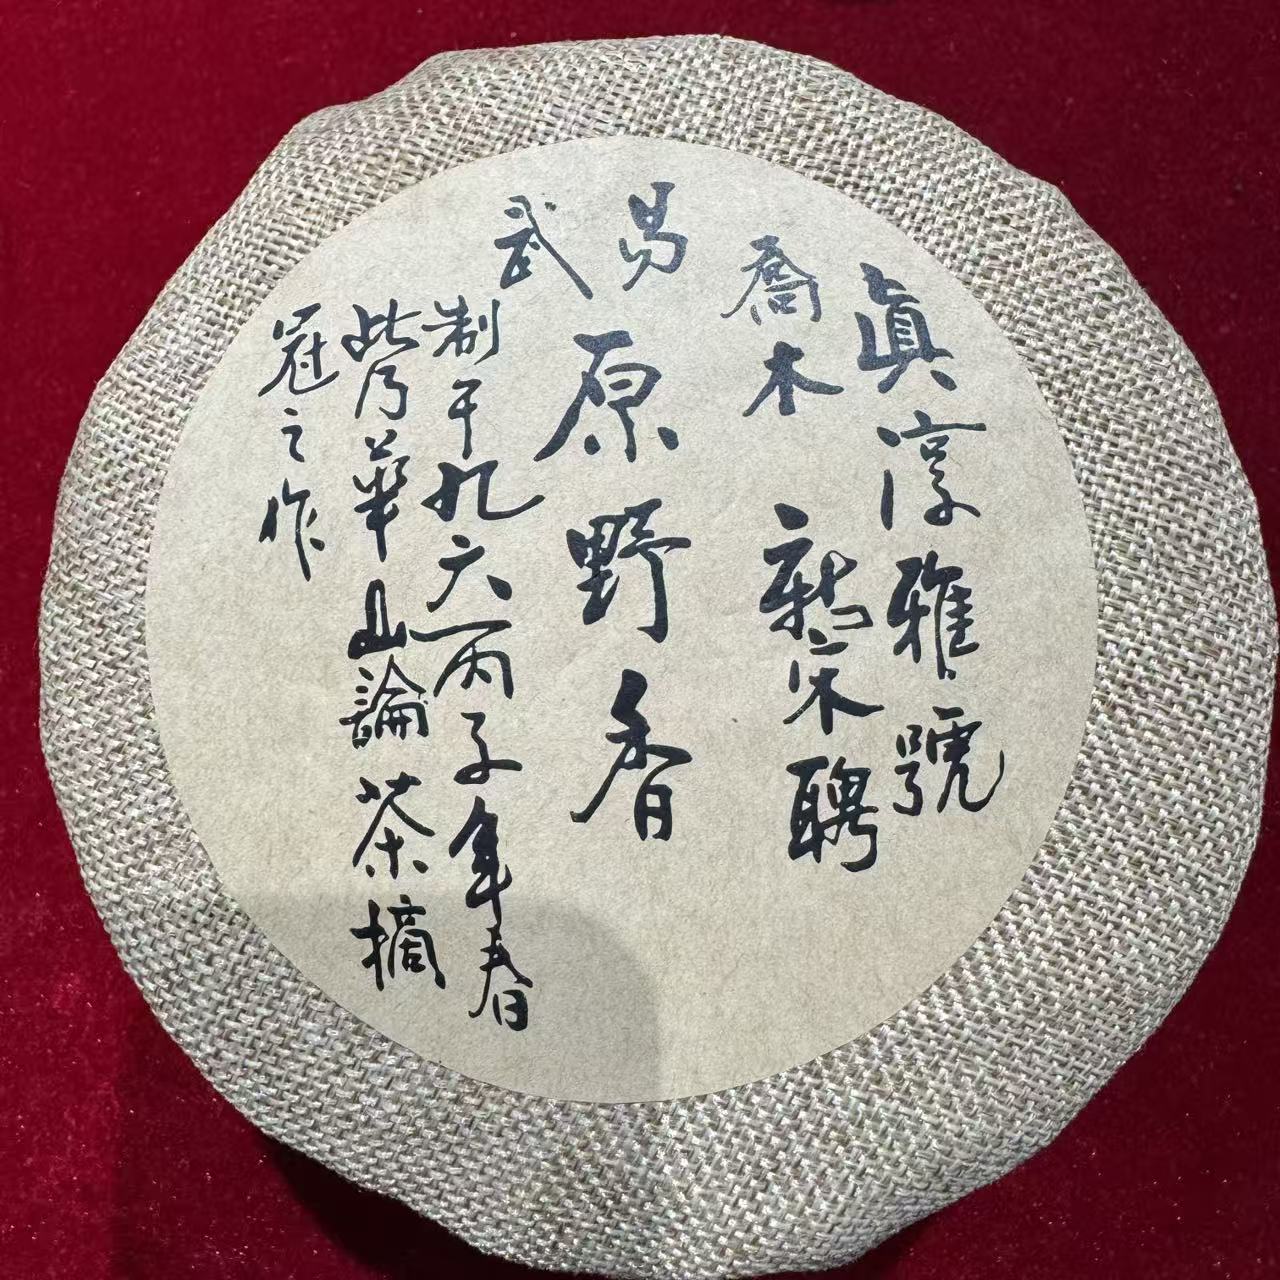 眞淳雅號
喬木
宋聘
易武
原野香
制于九六丙子年春
此乃華山論茶摘
冠之作